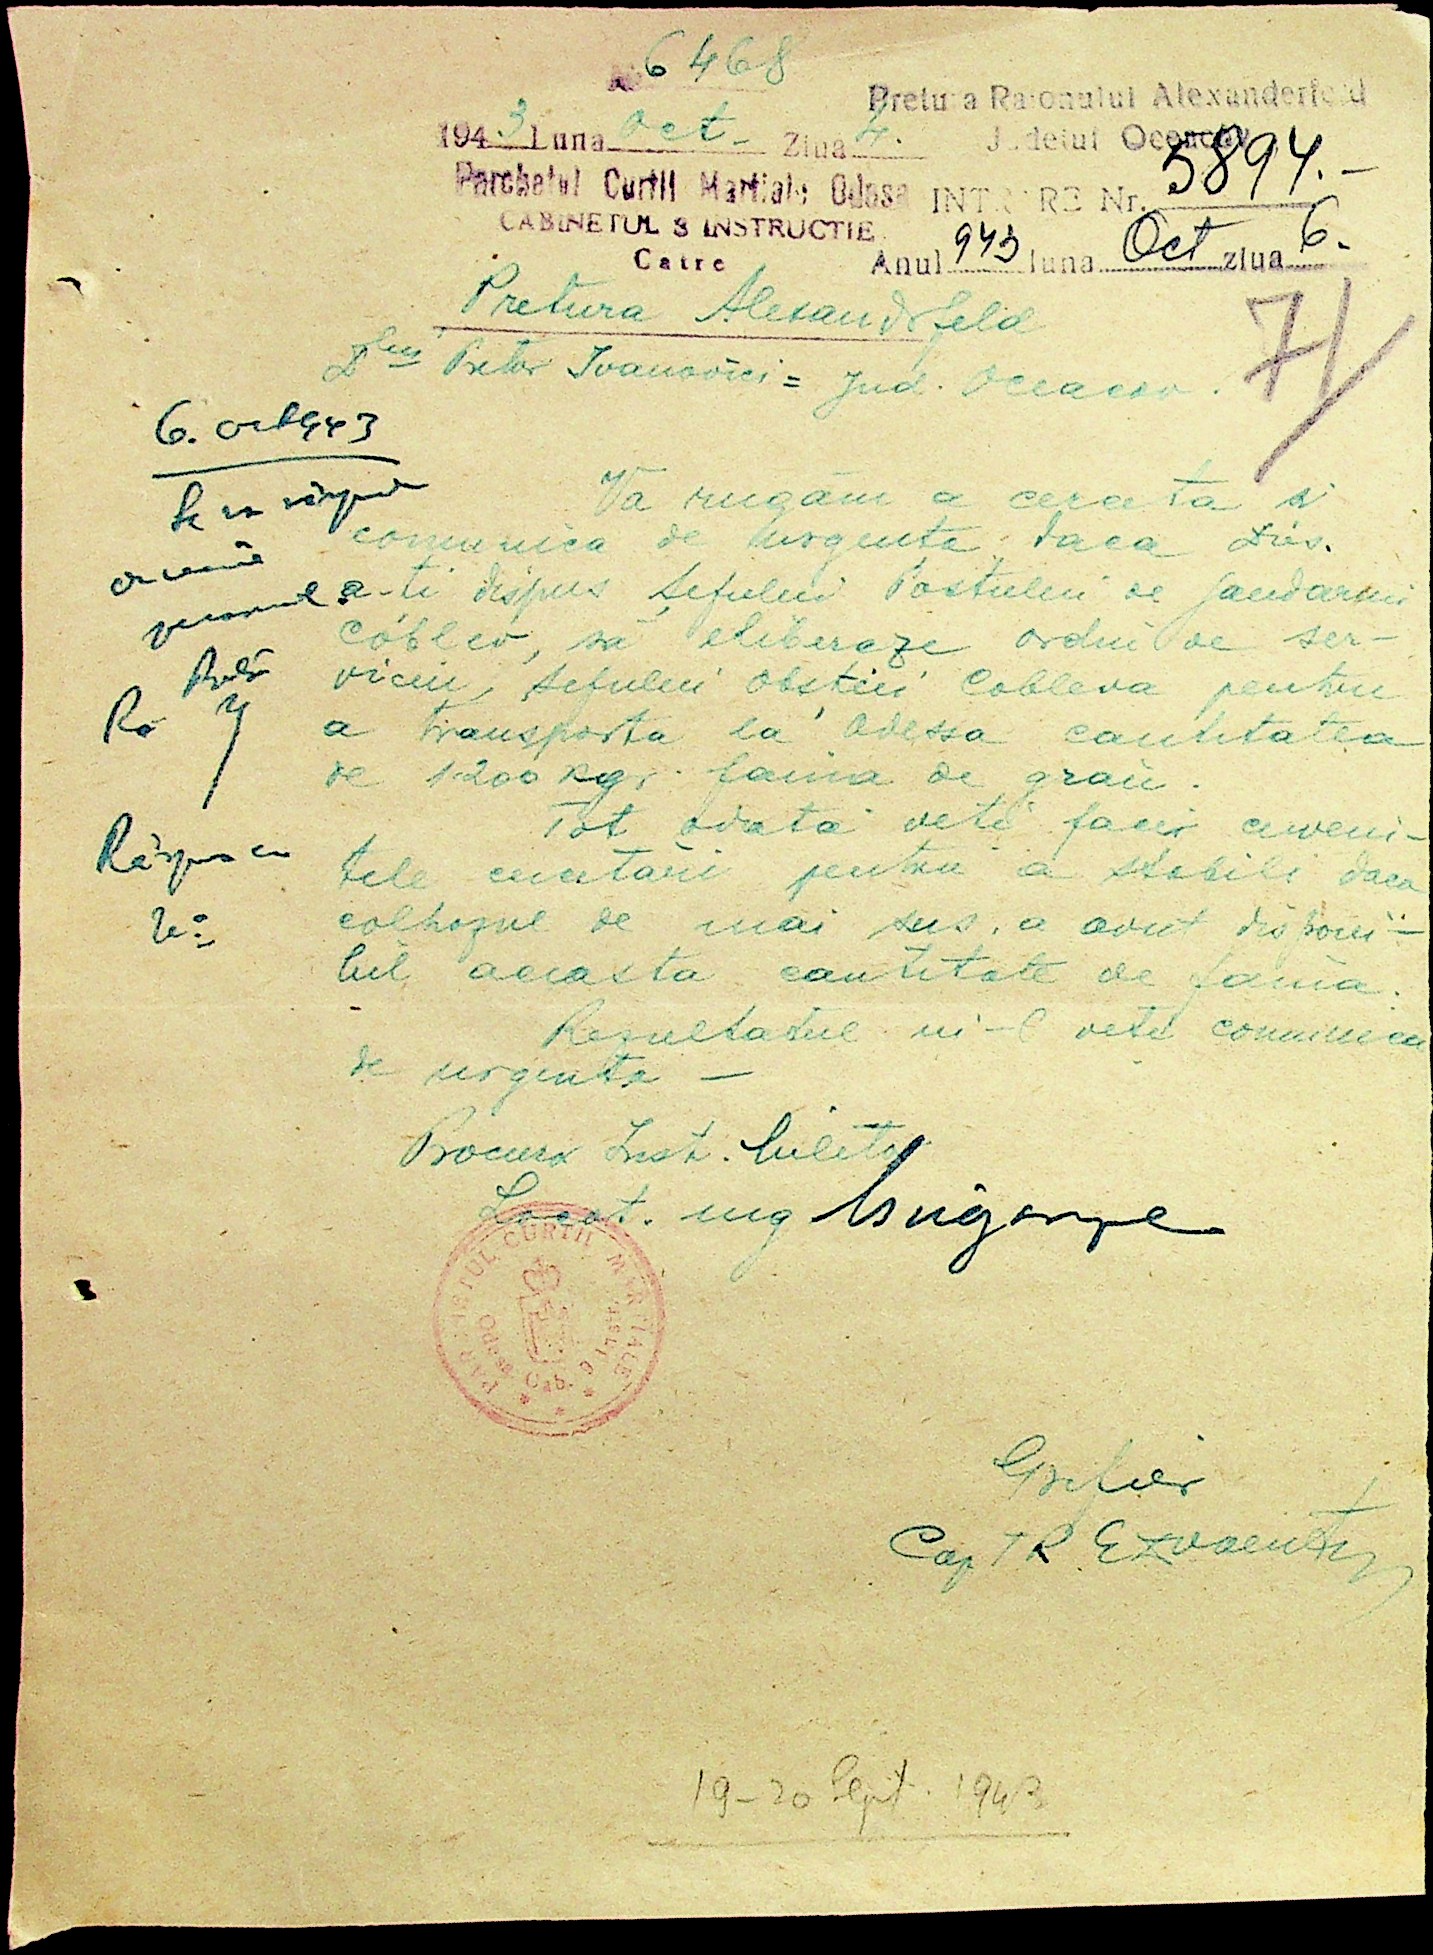 No 6468
1943 Luna Oct - Ziua 4.
Parchetul Curtii Martiale Odesa
CABINETUL 8 INSTRUCTIE
Catre
Pretura Raionului Alexanderfeld
Judetul Oceacov
INTRARE Nr. 5894.-
Anul 943 luna Oct ziua 6.
71
Pretura Alexandrfeld
Dlui Pretor Ivanovici = Jud. Oceacov.
6. Oct 943
Se va răspunde
Va rugăm a cerceta si
comunica de urgenta, daca Dvs.
a-ti dispus sefului Postului de Jandarmi
Coblev, să elibereze ordin de ser-
viciu, sefului Obstiei Cobleva pentru
a transporta la Odessa cantitatea
de 1200 kgr. faina de grau.
Tot odata veti face cuveni-
tele cercetări pentru a stabili daca
colhozul de mai sus, a avut disponi-
bil aceasta cantitate de faina.
Rezultatul ni-l veti comunica
de urgenta -
Răspuns cu
No
Procuror Inst. Militar
Locot. mg
PARCHETUL CURTII MARTIALE
Odesa Cab. 8 Instr.
Grefier
Cap TR
19-20 Sept. 1943